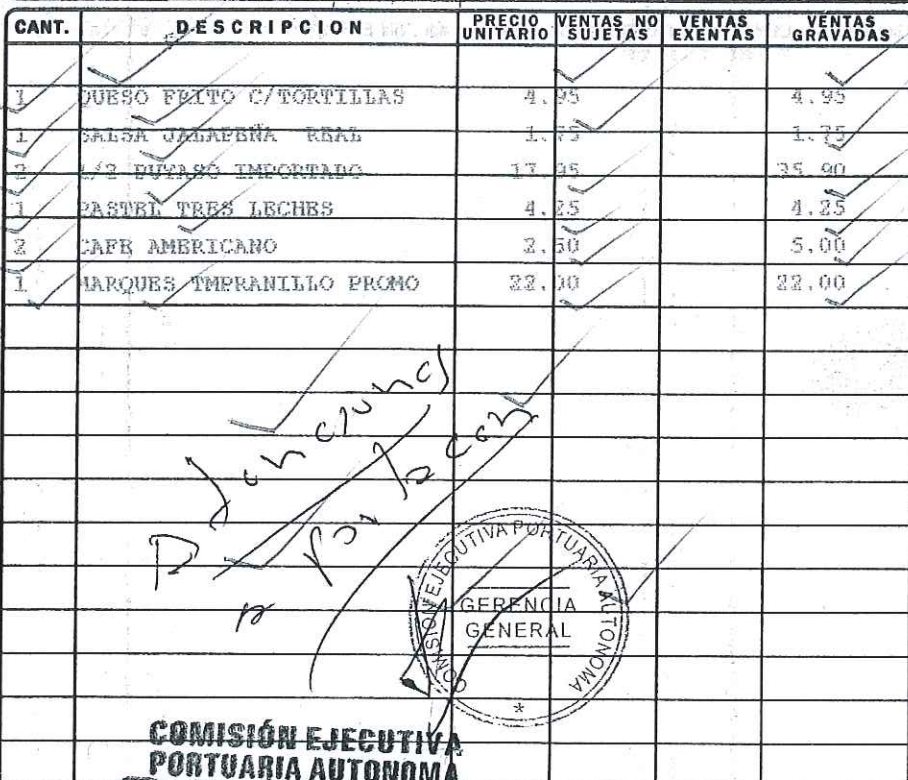 CANT. DESCRIPCION PRECIO UNITARIO VENTAS NO SUJETAS VENTAS EXENTAS VENTAS GRAVADAS
1 QUESO FRITO C/TORTILLAS 4.95 4.95
1 SALSA JALAPEÑA REAL 1.75 1.75
2 1/2 PUYASO IMPORTADO 17.95 35.90
1 PASTEL TRES LECHES 4.25 4.25
2 CAFE AMERICANO 2.50 5.00
1 MARQUES TMPRANILLO PROMO 22.00 22.00
COMISION EJECUTIVA PORTUARIA AUTONOMA
GERENCIA
GENERAL
*
COMISIÓN EJECUTIVA
PORTUARIA AUTONOMA